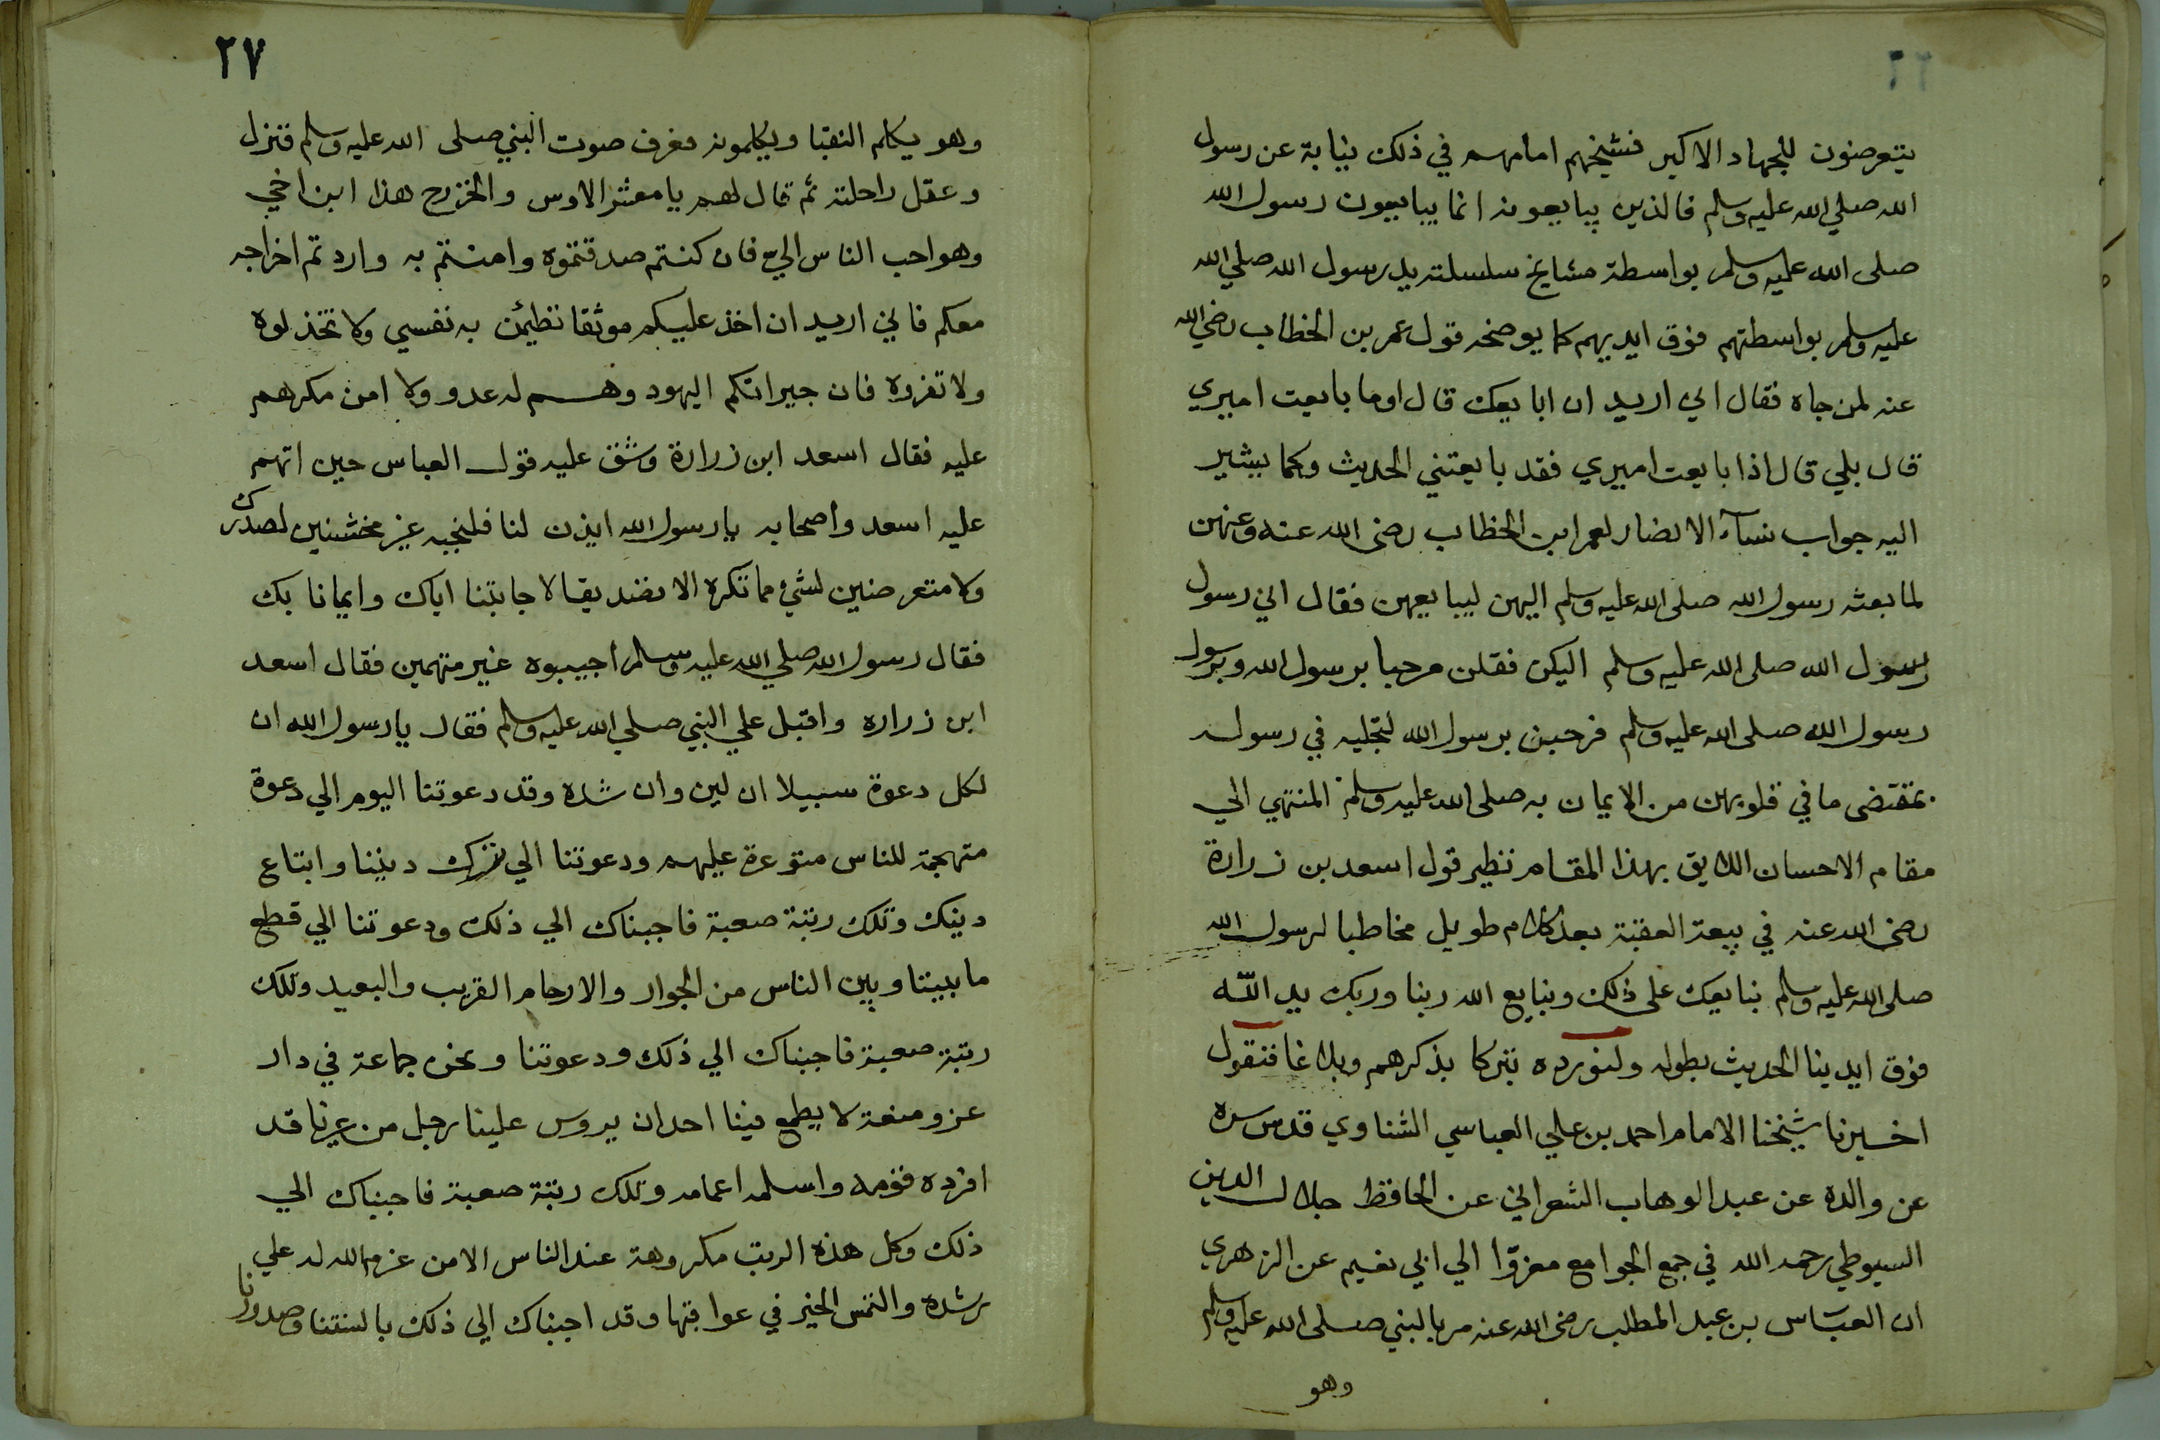 يتعرضون للجهاد الاكبر فشيخهم امامهم في ذلك نيابة عن رسول
الله صلى الله عليه وسلم فالذين يبايعونه انما يبايعون رسول الله
صلى الله عليه وسلم بواسطة مشايخ سلسلته يد رسول الله صلى الله
عليه وسلم بواسطتهم فوق ايديهم كما يوضحه قول عمر بن الخطاب رضي الله
عنه لمن جاه فقال اني اريد ان ابايعك قال اوما بايعت اميري
قال بلي قال اذا بايعت اميري فقد بايعتني الحديث وكما يشير
اليه جواب نسآء الانصار لعمر ابن الخطاب رضى الله عنه وعنهن
لما بعثه رسول الله صلى الله عليه وسلم اليهن ليبايعهن فقال اني رسول
رسول الله صلى الله عليه وسلم اليكن فقلن مرحبا برسول الله وبرسول
رسول الله صلى الله عليه وسلم فرحبن برسول الله لتجليه في رسوله
بمقتضى ما في قلوبهن من الايمان به صلى الله عليه وسلم المنتهي الي
مقام الاحسان اللايق بهذا المقام نظير قول اسعد بن زرارة
رضى الله عنه في بيعة العقبة بعد كلام طويل مخاطبا لرسول الله
صلى الله عليه وسلم نبايعك على ذلك ونبايع الله ربنا وربك يد الله
فوق ايدينا الحديث بطوله ولنورده تبركا بذكرهم وبلاغا فنقول
اخبرنا شيخنا الامام احمد بن علي العباسي الشناوي قدس سره
عن والده عن عبد الوهاب الشعراني عن الحافظ جلال الدين
السيوطي رحمه الله في جمع الجوامع معزوّا الي ابي نعيم عن الزهري
ان العبّاس بن عبد المطلب رضى الله عنه مر بالنبي صلى الله عليه وسلم
وهو
٢٧
وهو يكلم النقبا ويكلمونه فعرف صوت النبي صلى الله عليه وسلم فنزل
وعقل راحلته ثم قال لهم يا معشر الاوس والخزرج هذا ابن اخي
وهو احب الناس الي فان كنتم صدقتموه وامنتم به واردتم اخراجه
معكم فاني اريد ان اخذ عليكم موثقا تطيئن به نفسي ولا تخذلوه
ولا تغروه فان جيرانكم اليهود وهم له عدو ولا امن مكرهم
عليه فقال اسعد ابن زرارة وشق عليه قول العباس حين اتهم
عليه اسعد واصحابه يا رسول الله ايذن لنا فلنجبه غير مخشنين لصدرك
ولا متعرضنين لشيء مما تكره الا تصديقا لاجابتنا اياك وايمانا بك
فقال رسول الله صلي الله عليه وسلم اجيبوه غير متهمين فقال اسعد
ابن زراره واقبل علي النبي صلي الله عليه وسلم فقال يا رسول الله ان
لكل دعوة سبيلا ان لين وان شده وقد دعوتنا اليوم الي دعوة
متهجمة للناس متوعرة عليهم ودعوتنا الي ترك ديننا واتباع
دينك وتلك رتبة صعبة فاجبناك الي ذلك ودعوتنا الي قطع
ما بيننا وبين الناس من الجوار والارحام القريب والبعيد وتلك
رتبة صعبة فاجبناك الي ذلك ودعوتنا ونحن جماعة في دار
عز ومنعة لا يطمع فينا احد ان يروس علينا رجل من غيرنا قد
افرده قومه واسلمه اعمامه وتلك رتبة صعبة فاجبناك الي
ذلك وكل هذه الرتب مكروهة عند الناس الا من عزم الله له علي
رشده والتمس الخير في عواقبها وقد اجبناك الي ذلك بالسنتنا وصدورنا